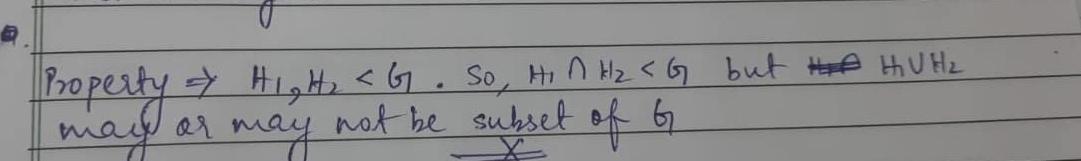 Property ⇒ H1, H2 < G. So, H1 ∩ H2 < G but H1UH2
may or may not be subset of G